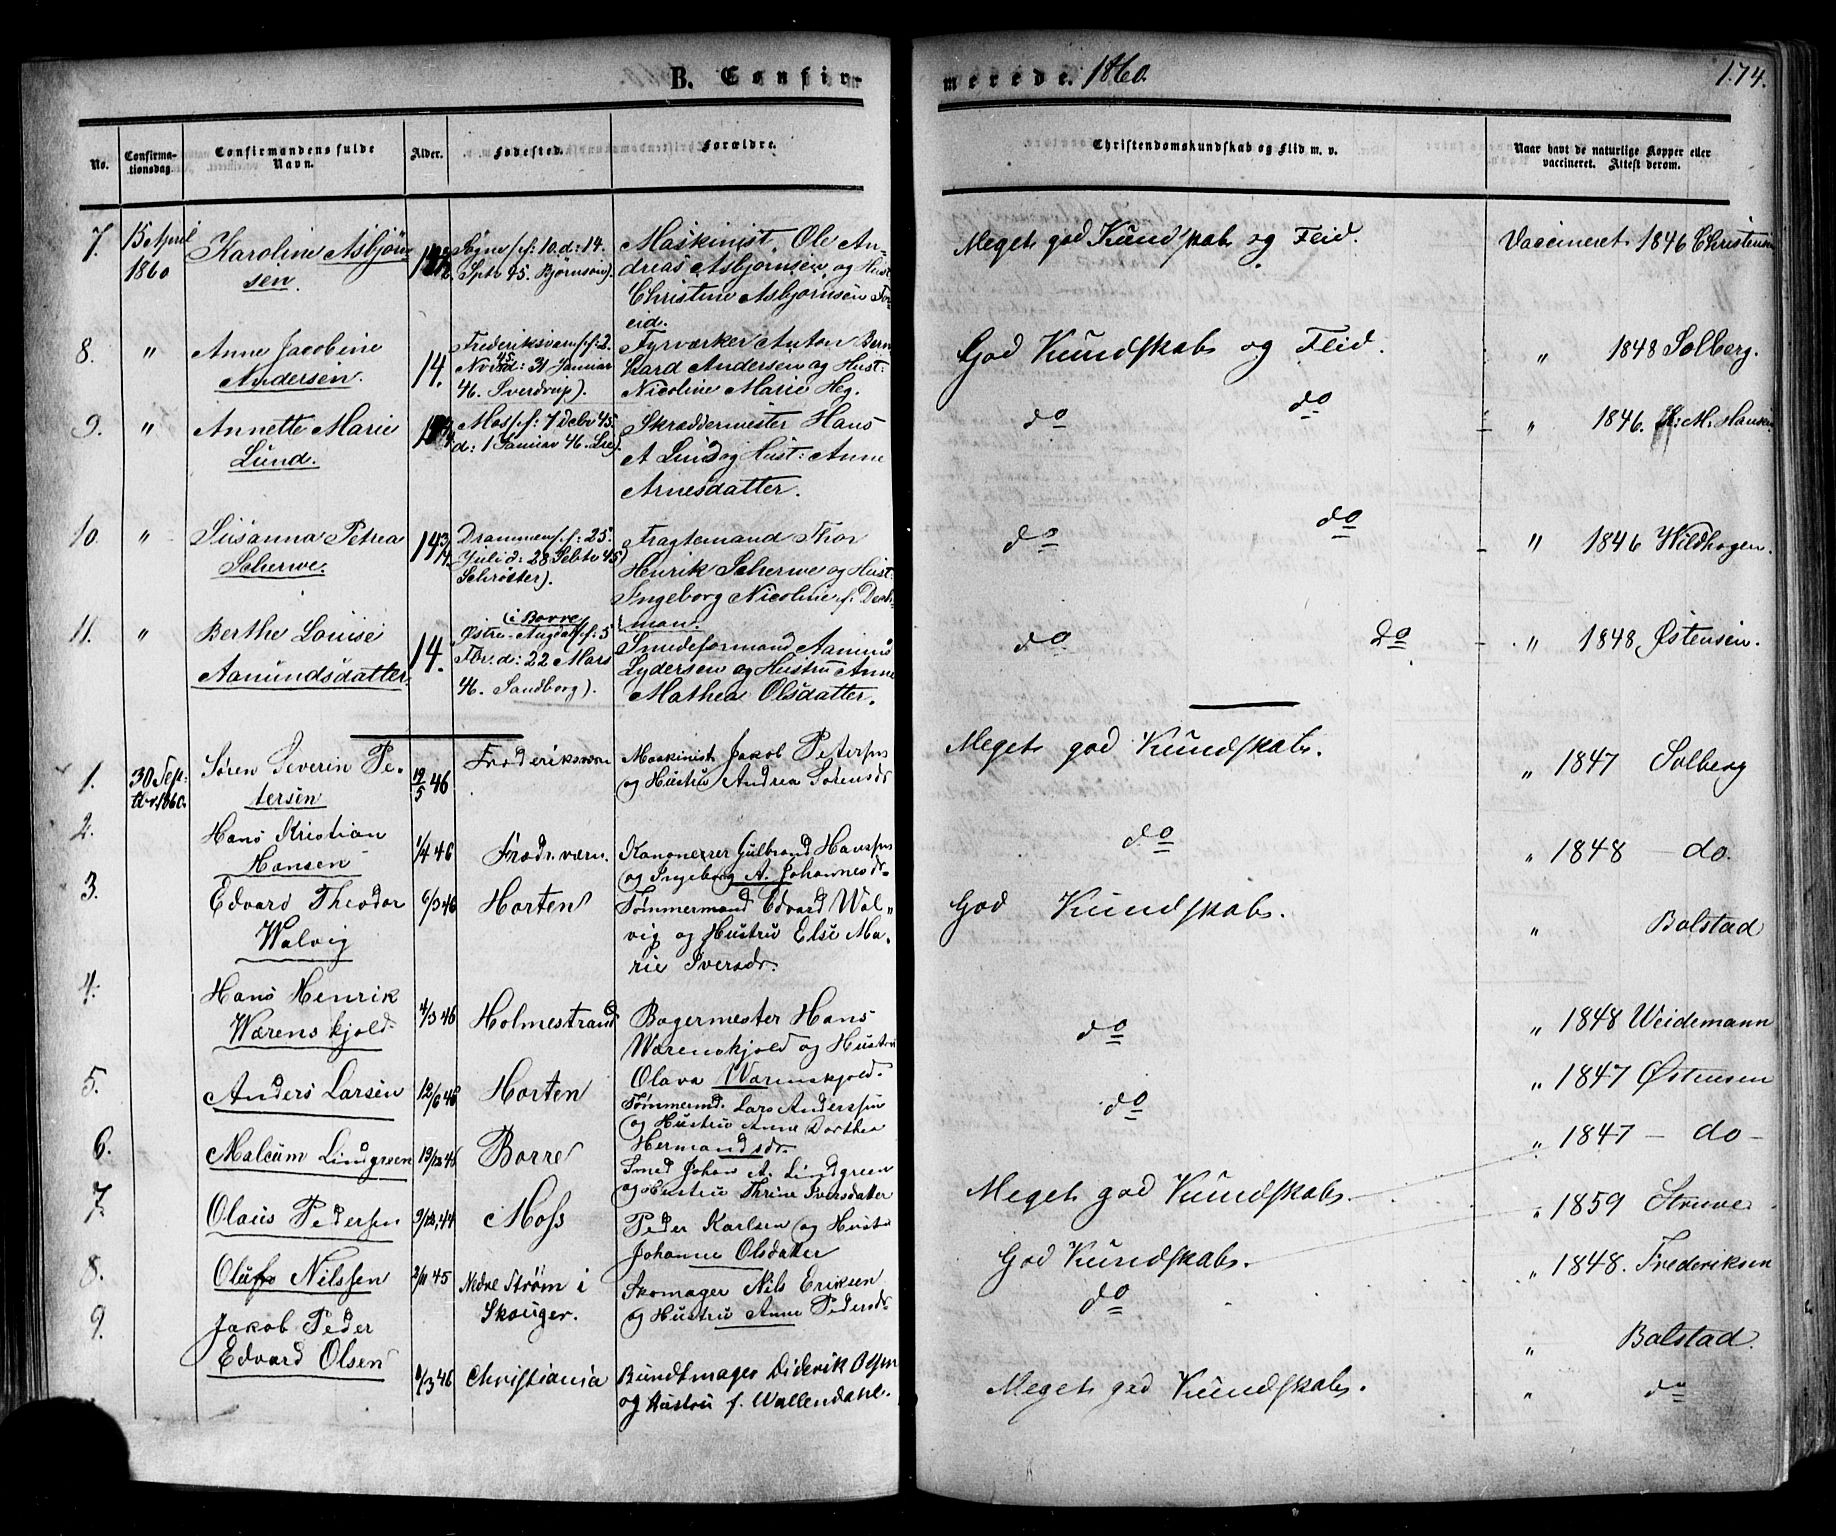 B. Confir-
merede. 1860.
174.
No.
Confirma-
tionsdag.
Confirmandens fulde
Navn.
Alder.
Fødested.
Forældre.
Christendomskundskab og Flid m. v.
Naar havt de naturlige Kopper eller
vaccineret. Attest derom.
7.
15 April
1860
Karoline Asbjørn
sen.
Sogne f: 10. d: 14.
Sptb 45. Bjørnson).
Maskinist, Ole An-
dreas Asbjørnsen og Hust
Christine Asbjørnsen
eid.
Meget god Kundskab og Flid.
Vaccineret 1846 Christensen
8.
"
Anne Jacobine
Andersen.
14.
Frederiksværn f: 2.
Novb 45 d: 31 Januar
46. Sverdrup).
Fyrværker Anton Bern
hard Andersen og Hust:
Nicoline Marie Heg.
God Kundskab og Flid.
" 1848 Solberg.
9.
"
Annette Marie
Lund.
Moss f: 7 Debr 45.
d: 1 Januar 46.
Skræddermester Hans
A Lund og Hust: Anne
Arnesdatter.
do do
" 1846. H: M: Hansen
10.
"
Susanna Petrea
Scherwe.
14 3/4
Drammen f: 25
Juli d: 28 Sebtb 45)
Schrøster).
Fragtemand Thor
Henrik Scherwe og Hust:
Ingeborg Nicoline f:
man.
do do
" 1846 Hildhagen.
11.
"
Berthe Louise
Aamundsdatter.
14.
(i Borre
Østre-Augdal f: 5
Fbr. d: 22 Mars
46. Sandberg).
Smedeformand Aamund
Lydersen og Hustru Anne
Mathea Olsdatter.
do Do
" 1848 Østensen.
1.
30 Sept:
tbr 1860.
Søren Severin Pe-
tersen
19/5 46
Frederiksværn
Maskinist Jakob Petersen
og Hustru Andrea Sørensdr
Meget god Kundskab.
" 1847 Solberg
2.
Hans Kristian
Hansen
1/4 46
Fredr.værn.
Kanonerer Gulbrand Hanssen
og Ingeborg A. Johannesdr.
do
" 1848 - do.
3.
Edvard Theodor
Walvig
6/3 46
Horten
Tømmermand Edvard Wal-
vig og Hustru Else Ma-
rie Iversdr.
God Kundskab.
" Balstad
4.
Hans Henrik
Wærenskjold.
4/3 46
Holmestrand
Bagermester Hans
Wærenskjold og Hustru
Olava Wærenskjold.
do
" 1848 Weidemann
5.
Anders Larsen
12/6 46
Horten
Tømmermd. Lars Anderssen
og Hustru Anne Dorthea
Hermandsdr.
do
" 1847 Østensen
6.
Malcum Lindgreen
Borre
Smed Johan A. Lindgreen
og Hustru Thrine Iversdatter
Meget god Kundskab.
" 1847 - do -
7.
Olaus Pederssen
Moss
Peder Karlsen og Hustr
Johanne Olsdatter
God Kundskab.
" 1859 Struve.
8.
Oluf Nilssen
2/11 45
Nedre Strøm i
Skouger.
Skomager Nils Eriksen
og Hustru Anne Pedersdr
do
" 1848. Frederiksen
9.
Jakob Peder
Edvard Olsen
6/3 46
Christiania
Bundtmager Diderik Olsen
og Hustru f. Wallendahl.
Meget god Kundskab.
" Balstad.
" do